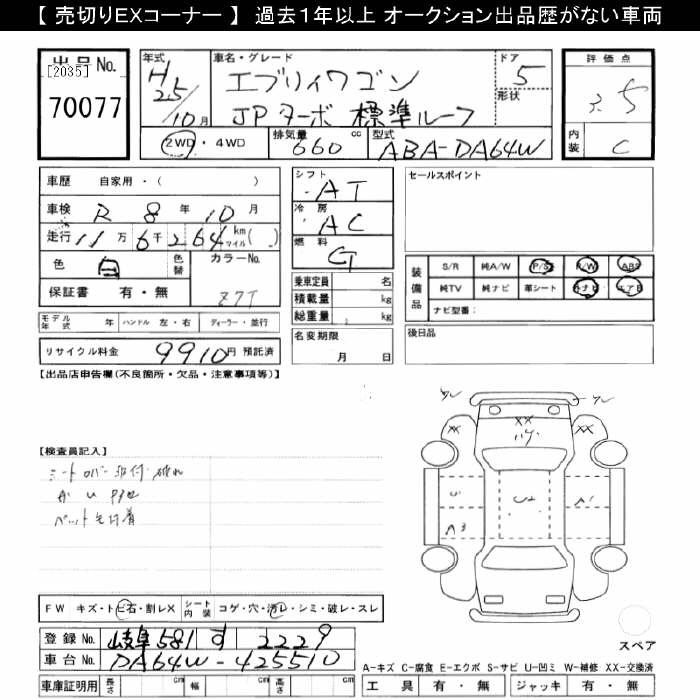 【 売切りEXコーナー 】 過去１年以上 オークション出品歴がない車両
出品No.
[2035]
70077
年式
H25/10月
車名・グレード
エブリィワゴン
JPターボ 標準ルーフ
ドア
5
形状
評価点
3.5
内装
C
2WD・4WD
排気量
660 cc
型式
ABA-DA64W
車歴 自家用・( )
車検 R 8年 10月
走行 11万6千264 km マイル( )
色 白
色替
カラーNo.
Z7T
保証書 有・無
モデル年式 年 ハンドル 左・右 ディーラー・並行
リサイクル料金 9910円 預託済
シフト
AT
冷房
AC
燃料
G
乗車定員 名
積載量 kg
総重量 kg
名変期限
月 日
セールスポイント
装備品
S/R 純A/W P/S P/W ABS
純TV 純ナビ 革シート 外ナビ エアB
ナビ型番：
後日品
【出品店申告欄(不良箇所・欠品・注意事項等)】
【検査員記入】
ペット毛付着
ワレ
ワレ
XX
XX
ハゲ
XX
U1
U2
A1
A3
FW キズ・トビ石・割レX
シート内装 コゲ・穴・汚レ・シミ・破レ・スレ
登録No. 岐阜 581 す 2229
車台No. DA64W-425510
車庫証明用 長さ cm 幅 cm 高さ cm
スペア
A-キズ C-腐食 E-エクボ S-サビ U-凹ミ W-補修 XX-交換済
工具 有・無 ジャッキ 有・無